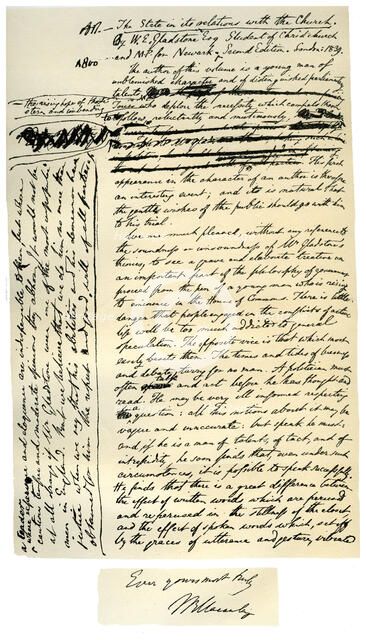 Art. — The State in its relations with the Church.
By W. E. Gladstone Esq. Student of Christ church
and M.P. for Newark. Second Edition. London 1839.
The author of this volume is a young man of
unblemished character and of distinguished parliamentary
talents,
— the rising hope of those
stern and unbending
Tories who
follow, reluctantly and mutinously,
The first
appearance in the character of an author is therefore
an interesting event; and it is natural that
the gentle wishes of the public should go with him
to his trial.
We are much pleased, without any reference to
the soundness or unsoundness of Mr Gladstone's
theories, to see a grave and elaborate treatise on
an important part of the philosophy of government
proceed from the pen of a young man who is rising
to eminence in the House of Commons. There is little
danger that people engaged in the conflicts of active
life will be too much addicted to general
speculation. The opposite vice is that which most
easily besets them. The times and tides of business
and debate tarry for no man. A politician must
often and act before he has thought and
read. He may be very ill informed respecting
a question: all his notions about it may be
vague and inaccurate: but speak he must,
and if he is a man of talents, of tact, and of
intrepidity, he soon finds that, even under such
circumstances, it is possible to speak successfully.
He finds that there is a great difference between
the effect of written words which are perused
and reperused in the stillness of the closet
and the effect of spoken words which, set off
by the graces of utterance and gesture, vibrate
a leader whose experience and eloquence are indispensable to them, but whose
cautious temper and moderate opinions they abhor. It would not be
at all strange if Mr Gladstone were one of the most unpopular
men in England. But we believe that we do him no more than
justice when we say that his abilities and his demeanour have
obtained for him the respect and good will of all parties.
Ever yours most truly
T B Macaulay